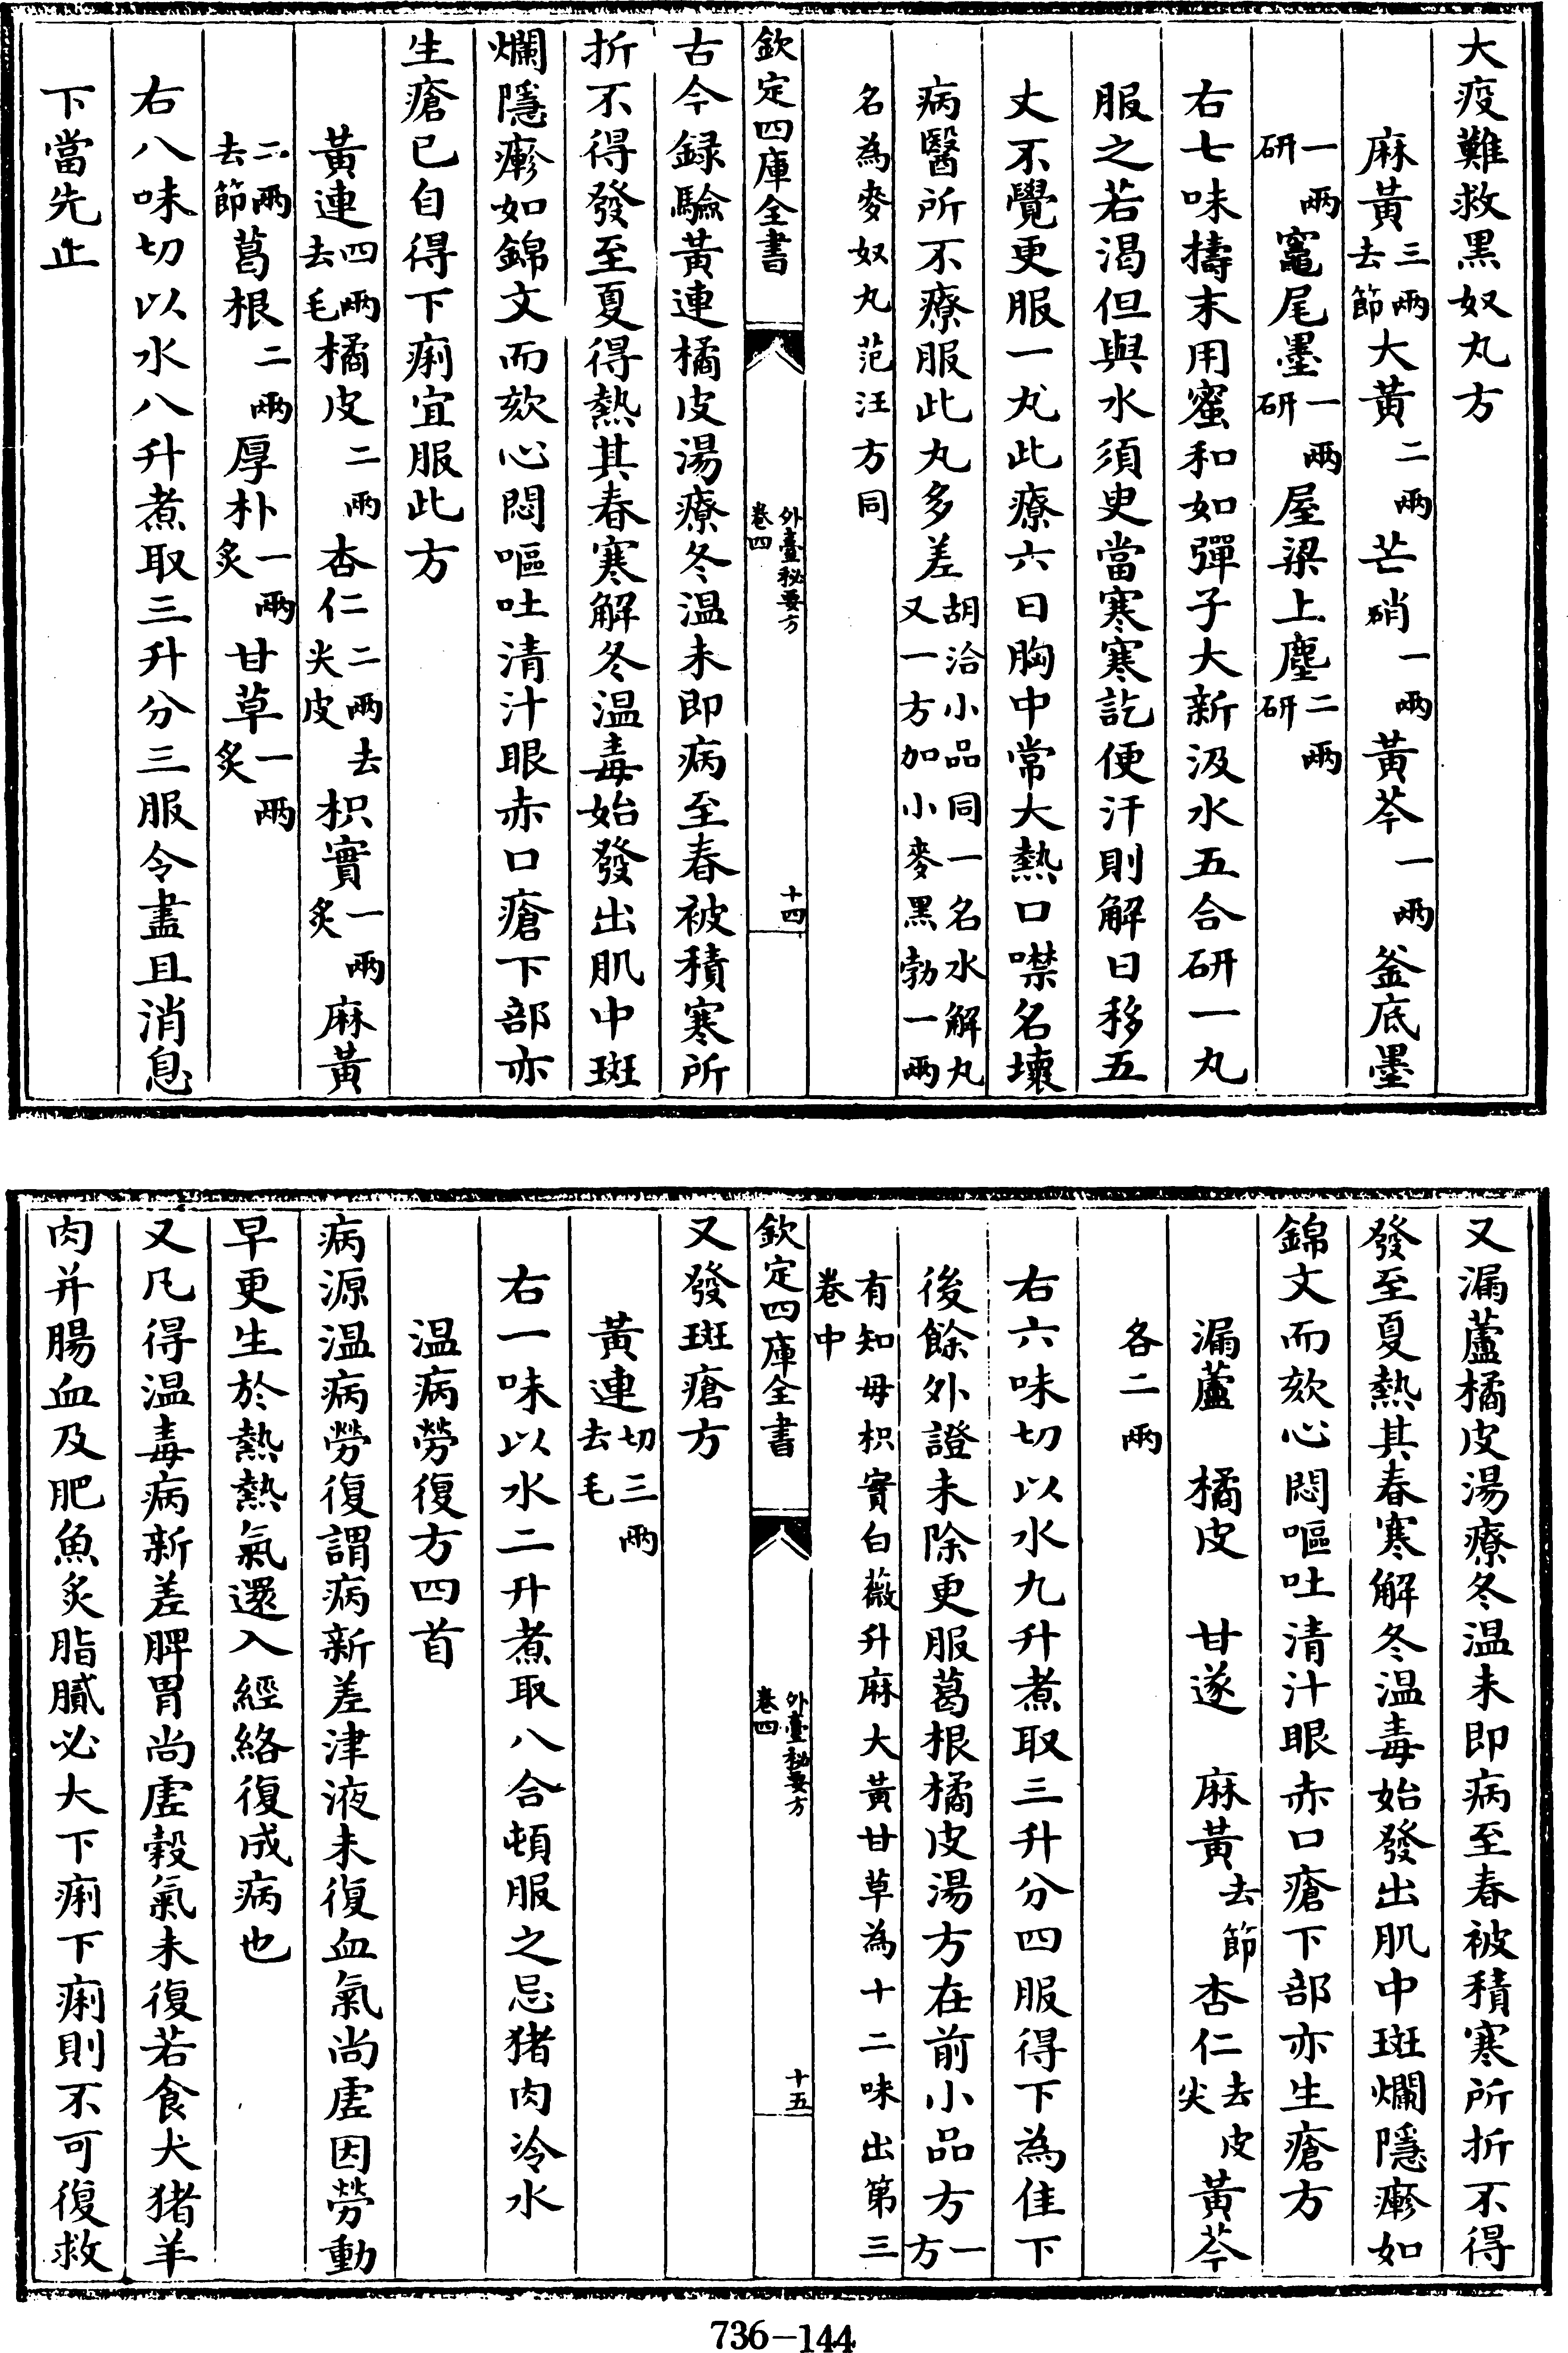 大疫難救黑奴丸方
麻黃三兩去節大黃二兩芒硝一兩黃芩一兩釜底墨
一兩研竈尾墨一兩研屋梁上塵二兩研
右七味擣末用蜜和如彈子大新汲水五合研一丸
服之若渴但與水須臾當寒寒訖便汗則解日移五
丈不覺更服一丸此療六日胸中常大熱口噤名壞
病醫所不療服此丸多差胡洽小品同一名水解丸又一方加小麥黑勃一兩
名為麥奴丸范汪方同
欽定四庫全書 外臺秘要方卷四 十四
古今録驗黃連橘皮湯療冬温未即病至春被積寒所
折不得發至夏得熱其春寒解冬温毒始發出肌中斑
爛隱瘮如錦文而欬心悶嘔吐清汁眼赤口瘡下部亦
生瘡已自得下痢宜服此方
黃連四兩去毛橘皮二兩杏仁二兩去尖皮枳實一兩炙麻黃
二兩去節葛根二兩厚朴一兩炙甘草一兩炙
右八味切以水八升煮取三升分三服令盡且消息
下當先止
又漏蘆橘皮湯療冬温未即病至春被積寒所折不得
發至夏熱其春寒解冬温毒始發出肌中斑爛隱瘮如
錦文而欬心悶嘔吐清汁眼赤口瘡下部亦生瘡方
漏蘆 橘皮 甘遂 麻黃去節杏仁去皮尖黃芩
各二兩
右六味切以水九升煮取三升分四服得下為佳下
後餘外證未除更服葛根橘皮湯方在前小品方一方
有知母枳實白薇升麻大黃甘草為十二味出第三
卷中
欽定四庫全書 外臺秘要方卷四 十五
又發斑瘡方
黃連切三兩去毛
右一味以水二升煮取八合頓服之忌猪肉冷水
温病勞復方四首
病源温病勞復謂病新差津液未復血氣尚虛因勞動
早更生於熱熱氣還入經絡復成病也
又凡得温毒病新差脾胃尚虛穀氣未復若食犬猪羊
肉并腸血及肥魚炙脂膩必大下痢下痢則不可復救
736-144